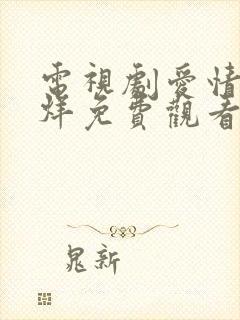 電視劇愛情
烊免費觀看
晁新